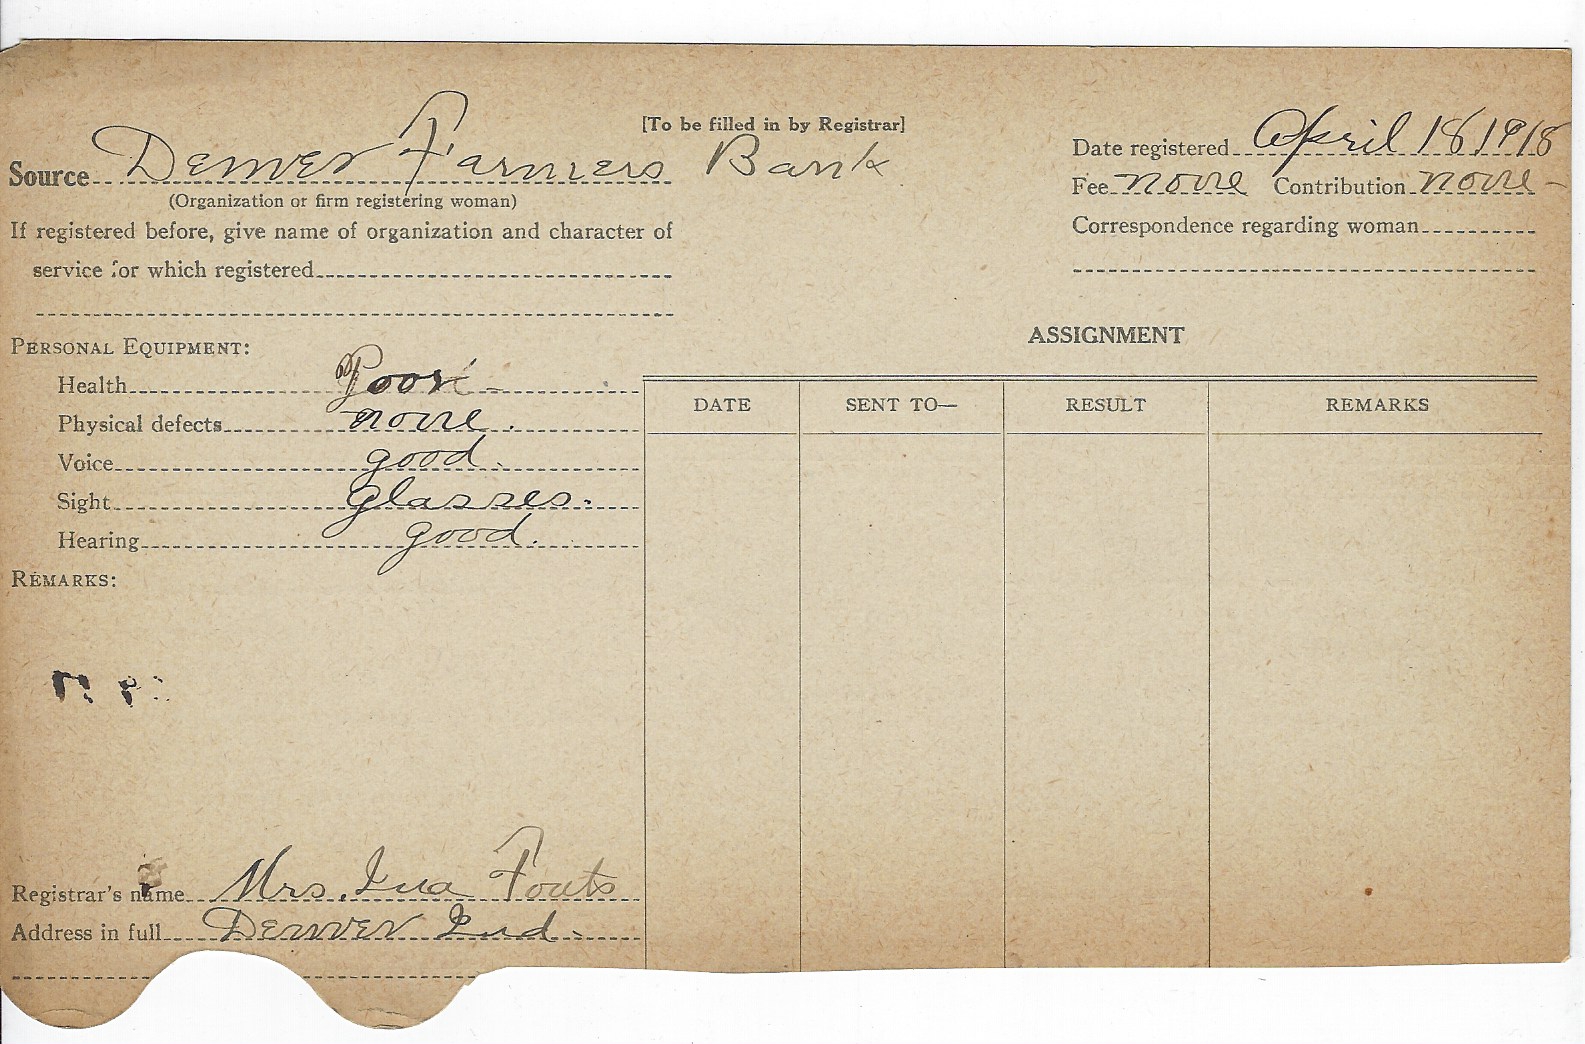 [To be filled in by Registrar]
Source Denver Farmers Bank
(Organization or firm registering woman)
If registered before, give name of organization and character of
service for which registered
Date registered April 18 1918
Fee none Contribution none -
Correspondence regarding woman
PERSONAL EQUIPMENT:
Health Poor -
Physical defects none.
Voice good.
Sight glasses.
Hearing good.
REMARKS:
ASSIGNMENT
DATE SENT TO— RESULT REMARKS
Registrar's name Mrs. Ina Fouts
Address in full Denver Ind.